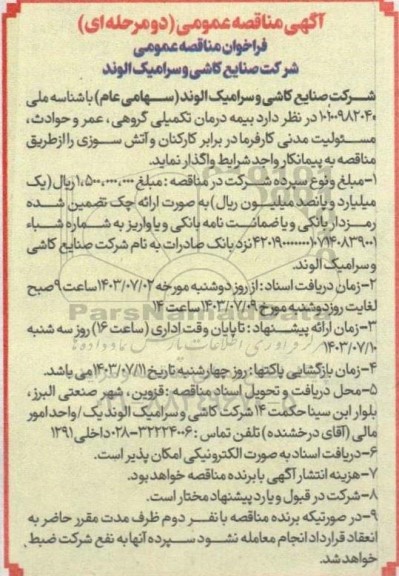 آگهی مناقصه عمومی (دو مرحله ای)
فراخوان مناقصه عمومی
شرکت صنایع کاشی و سرامیک الوند
شرکت صنایع کاشی و سرامیک الوند (سهامی عام) با شناسه ملی
۱۰۱۰۰۹۸۲۰۴۰ در نظر دارد بیمه درمان تکمیلی گروهی، عمر و حوادث،
مسئولیت مدنی کارفرما در برابر کارکنان و آتش سوزی را از طریق
مناقصه به پیمانکار واجد شرایط واگذار نماید.
۱-مبلغ و نوع سپرده شرکت در مناقصه: مبلغ ۱،۵۰۰،۰۰۰،۰۰۰ ریال (یک
میلیارد و پانصد میلیون ریال) به صورت ارائه چک تضمین شده
رمزدار بانکی و یا ضمانت نامه بانکی و یا واریز به شماره شباء
نزد بانک صادرات به نام شرکت صنایع کاشی
و سرامیک الوند.
۲-زمان دریافت اسناد: از روز دوشنبه مورخه ۱۴۰۳/۰۷/۰۲ ساعت ۹ صبح
لغایت روز دوشنبه مورخ ۱۴۰۳/۰۷/۰۹ ساعت ۱۴
۳-زمان ارائه پیشنهاد: تا پایان وقت اداری (ساعت ۱۶) روز سه شنبه
۱۴۰۳/۰۷/۱۰
۴-زمان بازگشایی پاکتها: روز چهارشنبه تاریخ ۱۴۰۳/۰۷/۱۱ می باشد.
۵-محل دریافت و تحویل اسناد مناقصه: قزوین، شهر صنعتی البرز،
بلوار ابن سینا حکمت ۱۴ شرکت کاشی و سرامیک الوند یک/واحد امور
مالی (آقای درخشنده) تلفن تماس: ۳۲۲۲۴۰۰۶-۰۲۸ داخلی ۱۳۹۱
۶-دریافت اسناد به صورت الکترونیکی امکان پذیر است.
۷-هزینه انتشار آگهی با برنده مناقصه خواهد بود.
۸-شرکت در قبول و یا رد پیشنهاد مختار است.
۹-در صورتیکه برنده مناقصه با نفر دوم ظرف مدت مقرر حاضر به
انعقاد قرارداد انجام معامله نشود سپرده آنها به نفع شرکت ضبط
خواهد شد.
ParsNamadData